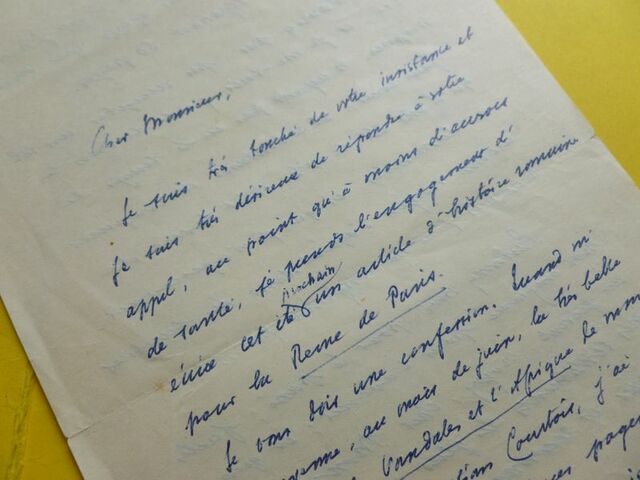 Cher Monsieur,
Je suis très touché de votre insistance et
Je suis très désireux de répondre à votre
appel, au point qu'à moins d'accroc
de santé, je prends l'engagement d'
prochain
écrire cet été un article d'histoire romaine
pour la Revue de Paris.
Je vous dois une confession. Quand m'
au mois de juin, la très belle
Vandales et l'Afrique de
Courtois, j'ai
pages